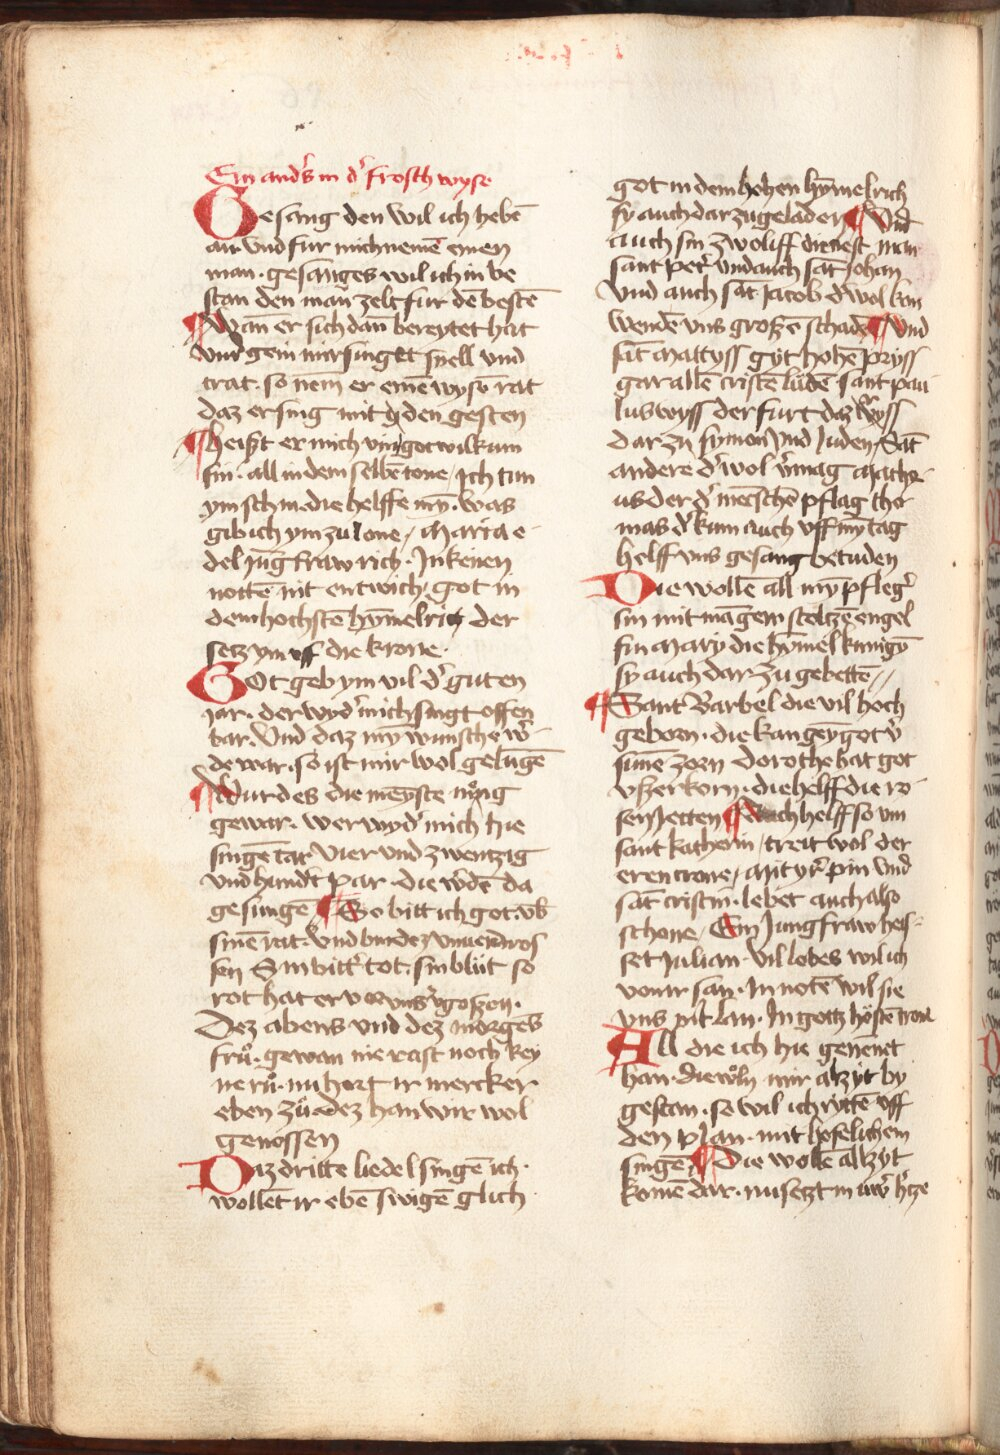 Ein and's in d' frosch wyse
Gesang den wil ich hebē
an vnd fur mich nemē einen
man · gesanges wil ich in be
stan den man zelt fur dē bestē
¶ Wañ er sich dan bereytet hat
vnd gein mir singet snell vnd
trat · so nem er einē wysō rat
daz er sing mit den gesten
¶ heißt er mich vm gotwilkum
sin · all in dem selbē tone / Ich tun
ym schin die helffe mȳ · was
gib ich ym zu lone / Maria e-
del jūgfraw rich · In keinen
nottē nit entwich / got in
dem hochstē hȳmelrich der
setz ym vff die krone ·
Got geb ym vil d' guten
jar · der wyd' mich singt offen
bar · Vnd daz mȳ wunsche w'-
de war · so ist mir wol gelūgē
¶ Wurdes die meyste mōg
gewar · wer wyd' mich hie
singē tar vier vnd zwentzig
vnd hundt par · die w'dē da
gesungē ¶ So bitt ich got · vb
sinē rat · vnd
sen Sin bitt' tot · sin blůt so
rot hat er vor vns v'goßen ·
Dez abens vnd dez morgēs
frů · gewan nie rast noch key
ne rů · nu hort ir mercker
eben zů · dez han wir wol
genossen
Daz dritte liedel singē ich ·
wollet ir ebē swigē glich
got in dem hohen hȳmelrich
sy auch dar zu geladen ¶ Vnd
auch sin zwoliff dienest man
sant pet' vnd auch sāt Johan
Vnd auch sāt Jacob d' wol kan
wendē vns großē schadē ¶ Vnd
sāt Mattyss gyt hohē pryss
gar allē cristē lüdē sant pau
lus wyss der furt daz ryss
dar zů symon vnd Juden / Sāt
andere d' wol v'mag Mathe-
us der d' meschē pflag tho-
mas d' kum auch vff mȳ tag
helff vns gesang betuden
Die wollē all mȳ pfleg'
sin mit mangem stoltzē engel
fin Mary die hȳmel kunigȳ
sy auch dar zu gebettē //
¶ Sant Barbel die vil hoch
geborn · die kan gey got v'
sunē zorn dorothe hat got
vßerkorn · die helff die ro
sen Jetten ¶ Auch helff so vin
sant katherin / treit wol der
eren crone / Mit yr pin vnd
sāt cristin · lebet auch also
schone / Ein Jungfraw heis-
set Julian · vil lobes wil ich
von ir san · In notē wil sie
vns nit lan · In gottz höstē trone
All die ich hie genēnet
han · die wöln mir alzyt by
gestan · so wil ich rytē vff
den plan · mit hofelichem
singē ¶ Die wollē alzyt
komē dar · nu setzt in uw' h'tze